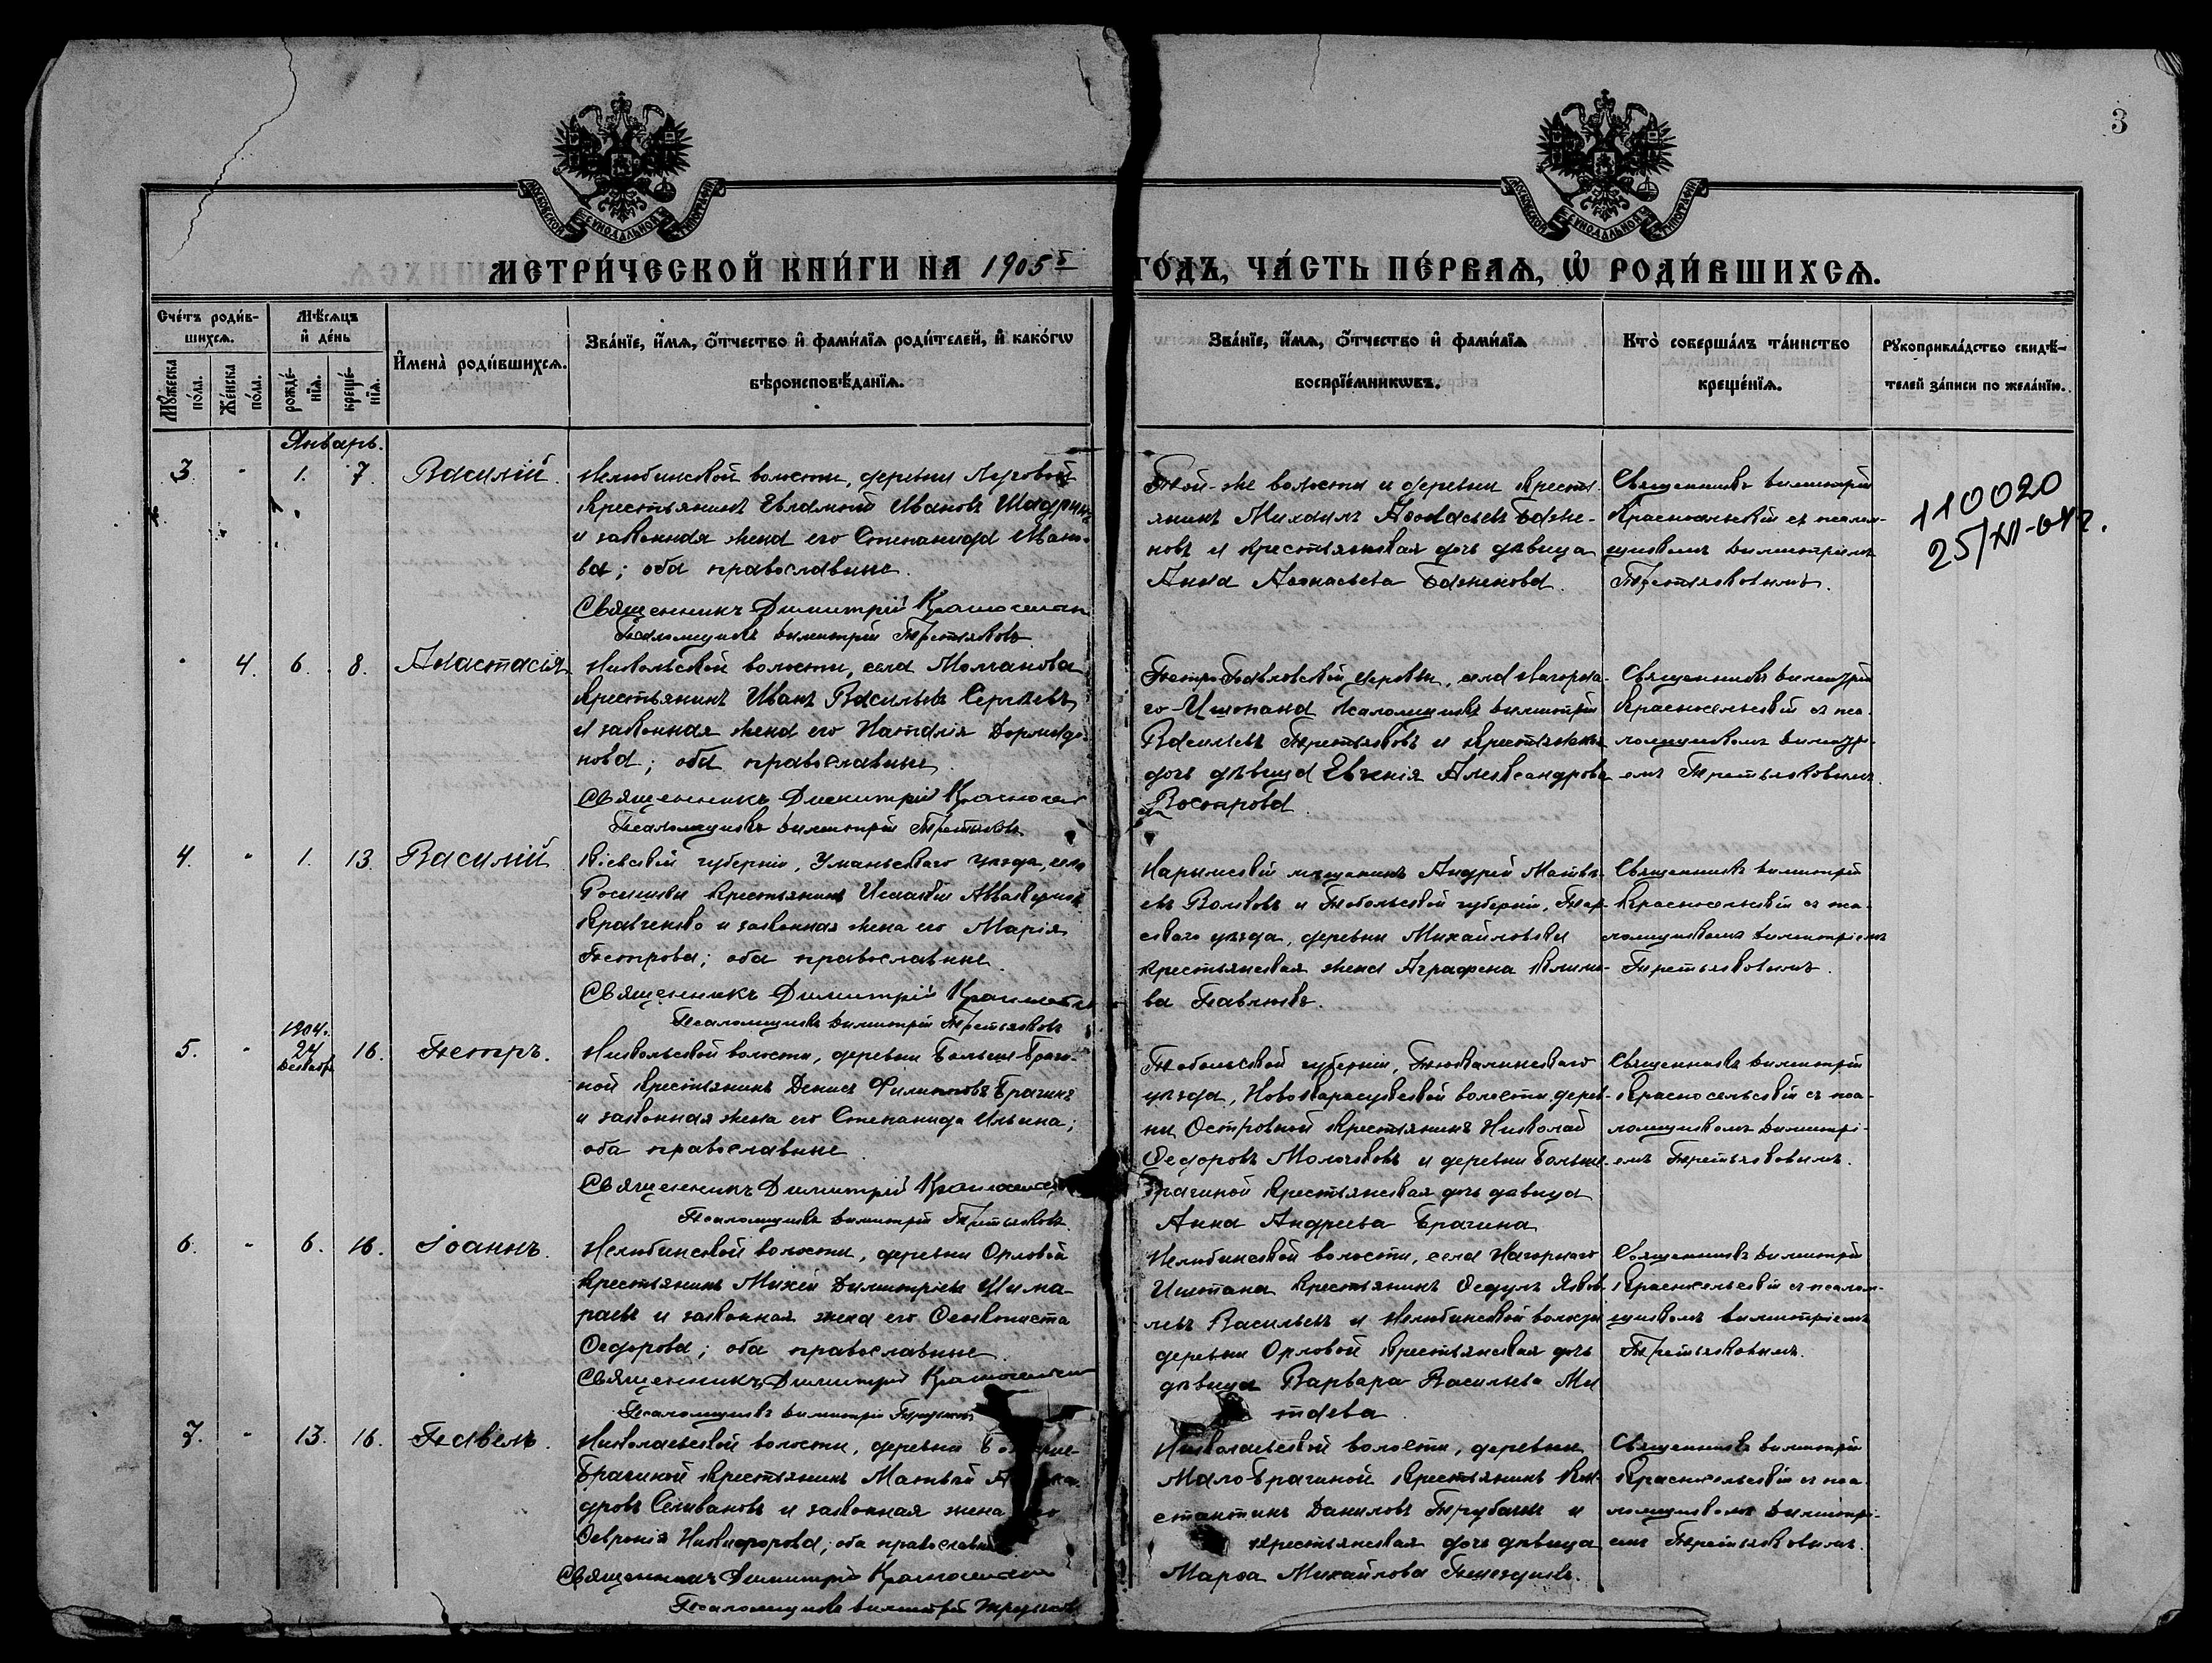 3
МОСКОВСКОЙ СѴНОДАЛЬНОЙ ТИПОГРАФІИ
МОСКОВСКОЙ СѴНОДАЛЬНОЙ ТИПОГРАФІИ
МЕТРИ́ЧЕСКОЙ КНИ́ГИ НА 1905й ГО́ДЪ, ЧА́СТЬ ПЕ́РВАѦ, Ѡ҆ РОДИ́ВШИХСѦ.
Сче́тъ роди́в-
шихсѧ.
Мꙋ́жеска по́ла.
Же́нска по́ла.
Мѣ́сѧцъ
и҆ де́нь
рожде́-нїѧ.
креще́-нїѧ.
И҆мена̀ роди́вшихсѧ.
Зва́нїе, и҆́мѧ, ѻ҆́тчество и҆ фами́лїѧ роди́телей, и҆ како́гѡ
вѣроисповѣ́данїѧ.
Зва́нїе, и҆́мѧ, ѻ҆́тчество и҆ фами́лїѧ
воспрїе́мникѡвъ.
Кто̀ соверша́лъ та́инство
креще́нїѧ.
Рꙋкоприкла́дство свидѣ́-
телей за́писи по жела́нїю.
Январь.
3. " 1. 7. Василій.
Нелюбинской волости, деревни Луговой
крестьянинъ Евлампій Ивановъ Шадринъ
и законная жена его Степанида Ивано-
ва; оба православные.
Священникъ Димитрій Красносельскій
Псаломщикъ Димитрій Третьяковъ
Той-же волости и деревни кресть-
янинъ Михаилъ Аѳонасьевъ Бажe-
новъ и крестьянская дочь дѣвица
Анна Аѳонасьева Баженова.
Священникъ Димитрій
Красносельскій съ псалом-
щикомъ Димитріемъ
Третьяковымъ.
110020
25/XII-64г.
" 4. 6. 8. Анастасія
Никольской волости, села Молчанова
крестьянинъ Иванъ Васильевъ Сергѣевъ
и законная жена его Наталія Дормидо-
нова; оба православные.
Священникъ Димитрій Красносел
Псаломщикъ Димитрій Третьяковъ
Петро-Павловской церкви, села Нагорна-
го-Иштана псаломщикъ Димитрій
Васильевъ Третьяковъ и крестьянская
дочь дѣвица Евгенія Александрова
Вострова.
Священникъ Димитрій
Красносельскій съ пса-
ломщикомъ Димитрі-
емъ Третьяковымъ.
4. " 1. 13. Василій
Кіевской губерніи, Уманьскаго уѣзда, села
крестьянинъ
Кравченко и законная жена его Марія
Петрова; оба православные.
Священникъ Димитрій Красносельск
Псаломщикъ Димитрій Третьяковъ
Нарымскій мѣщанинъ Андрей Матвѣ-
евъ Волковъ и Тобольской губерніи, Тар-
скаго уѣзда, деревни Михайловки
крестьянская жена Аграфена Климо-
ва Павлюкъ.
Священникъ Димитрій
Красносельскій съ пса-
ломщикомъ Димитріемъ
Третьяковымъ.
5. " 1904. 24 Декабр. 16. Петръ.
Никольской волости, деревни Больше-Браги-
ной крестьянинъ Денисъ Филипповъ Брагинъ
и законная жена его Степанида Ильина;
оба православные.
Священникъ Димитрій Красносельск
Псаломщикъ Димитрій Третьяковъ
Тобольской губерніи, Тюкалинскаго
уѣзда, Новокарасукской волости, дерев-
ни Островной крестьянинъ Николай
Ѳедоровъ Молочковъ и деревни Больше-
Брагиной крестьянская дочь дѣвица
Анна Андреева Брагина
Священникъ Димитрій
Красносельскій съ пса-
ломщикомъ Димитрі-
емъ Третьяковымъ.
6. " 6. 16. Іоаннъ.
Нелюбинской волости, деревни Орловой
крестьянинъ Михей Димитріевъ Шима-
раевъ и законная жена его Ѳеоктиста
Ѳедорова; оба православные.
Священникъ Димитрій Красносельскій
Псаломщикъ Димитрій Третьяковъ
Нелюбинской волости, села Нагорнаго
Иштана крестьянинъ Ѳедулъ Яков-
левъ Васильевъ и Нелюбинской волости
деревни Орловой крестьянская дочь
дѣвица Варвара Васильева Ми
таева.
Священникъ Димитрій
Красносельскій съ псалом-
щикомъ Димитріемъ
Третьяковымъ.
7. " 13. 16. Павелъ.
Николаевской волости, деревни Больше-
Брагиной крестьянинъ Матвей
дровъ Селивановъ и законная жена его
Ѳевронія Никифорова; оба православные
Священникъ Димитрій Красносельскій
Псаломщикъ Димитрій Третьяковъ
Николаевской волости, деревни
Мало-Брагиной крестьянинъ Кон-
стантинъ Даниловъ Трубачевъ и
крестьянская дочь дѣвица
Марѳа Михайлова
Священникъ Димитрій
Красносельскій съ пса-
ломщикомъ Димитрі-
емъ Третьяковымъ.